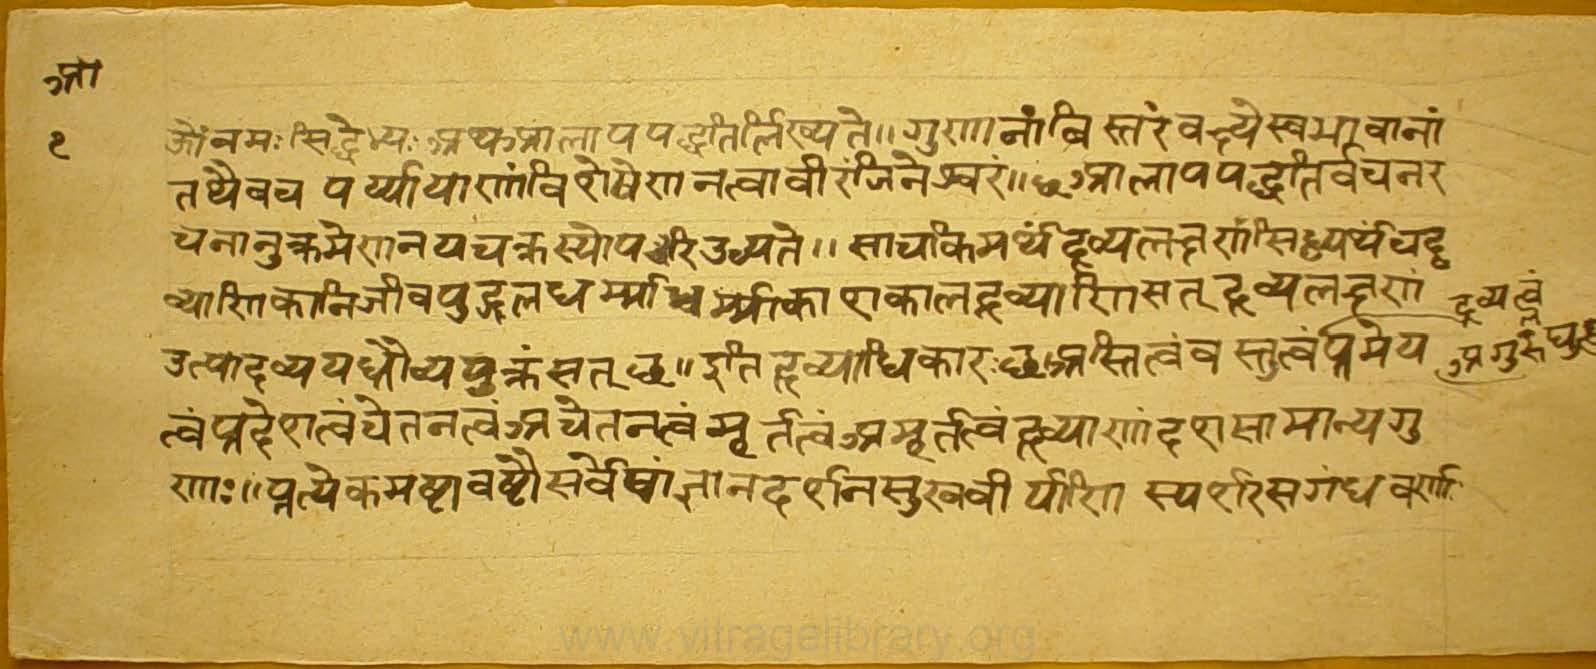 आ
१
ओंनमः सिद्धेभ्यः अथ आलापपद्धतिर्लिख्यते॥ गुणानां विस्तरं वक्ष्ये स्वभावानां
तथैव च पर्य्यायाणां विशेषेण नत्वा वीरं जिनेश्वरं॥ छ आलापपद्धतिर्वचनर
चनानुक्रमेण नयचक्रस्योपरि उच्यते॥ सा च किमर्थं द्रव्यलक्षणसिद्ध्यर्थं च द्र
व्याणि कानि जीवपुद्गलधर्म्माधर्म्माकाशकालद्रव्याणि सत् द्रव्यलक्षणं
द्रव्यत्वं
उत्पादव्ययध्रौव्ययुक्तं सत् छ॥ इति द्रव्याधिकारः छ अस्तित्वं वस्तुत्वं प्रमेय
अगुरुलघुत्वं
त्वं प्रदेशत्वं चेतनत्वं अचेतनत्वं मूर्तत्वं अमूर्तत्वं द्रव्याणां दश सामान्यगु
णाः॥ प्रत्येकमष्टावष्टौ सर्वेषां ज्ञानदर्शनसुखवीर्याणि स्पर्शरसगंधवर्णाः
www.vitragelibrary.org